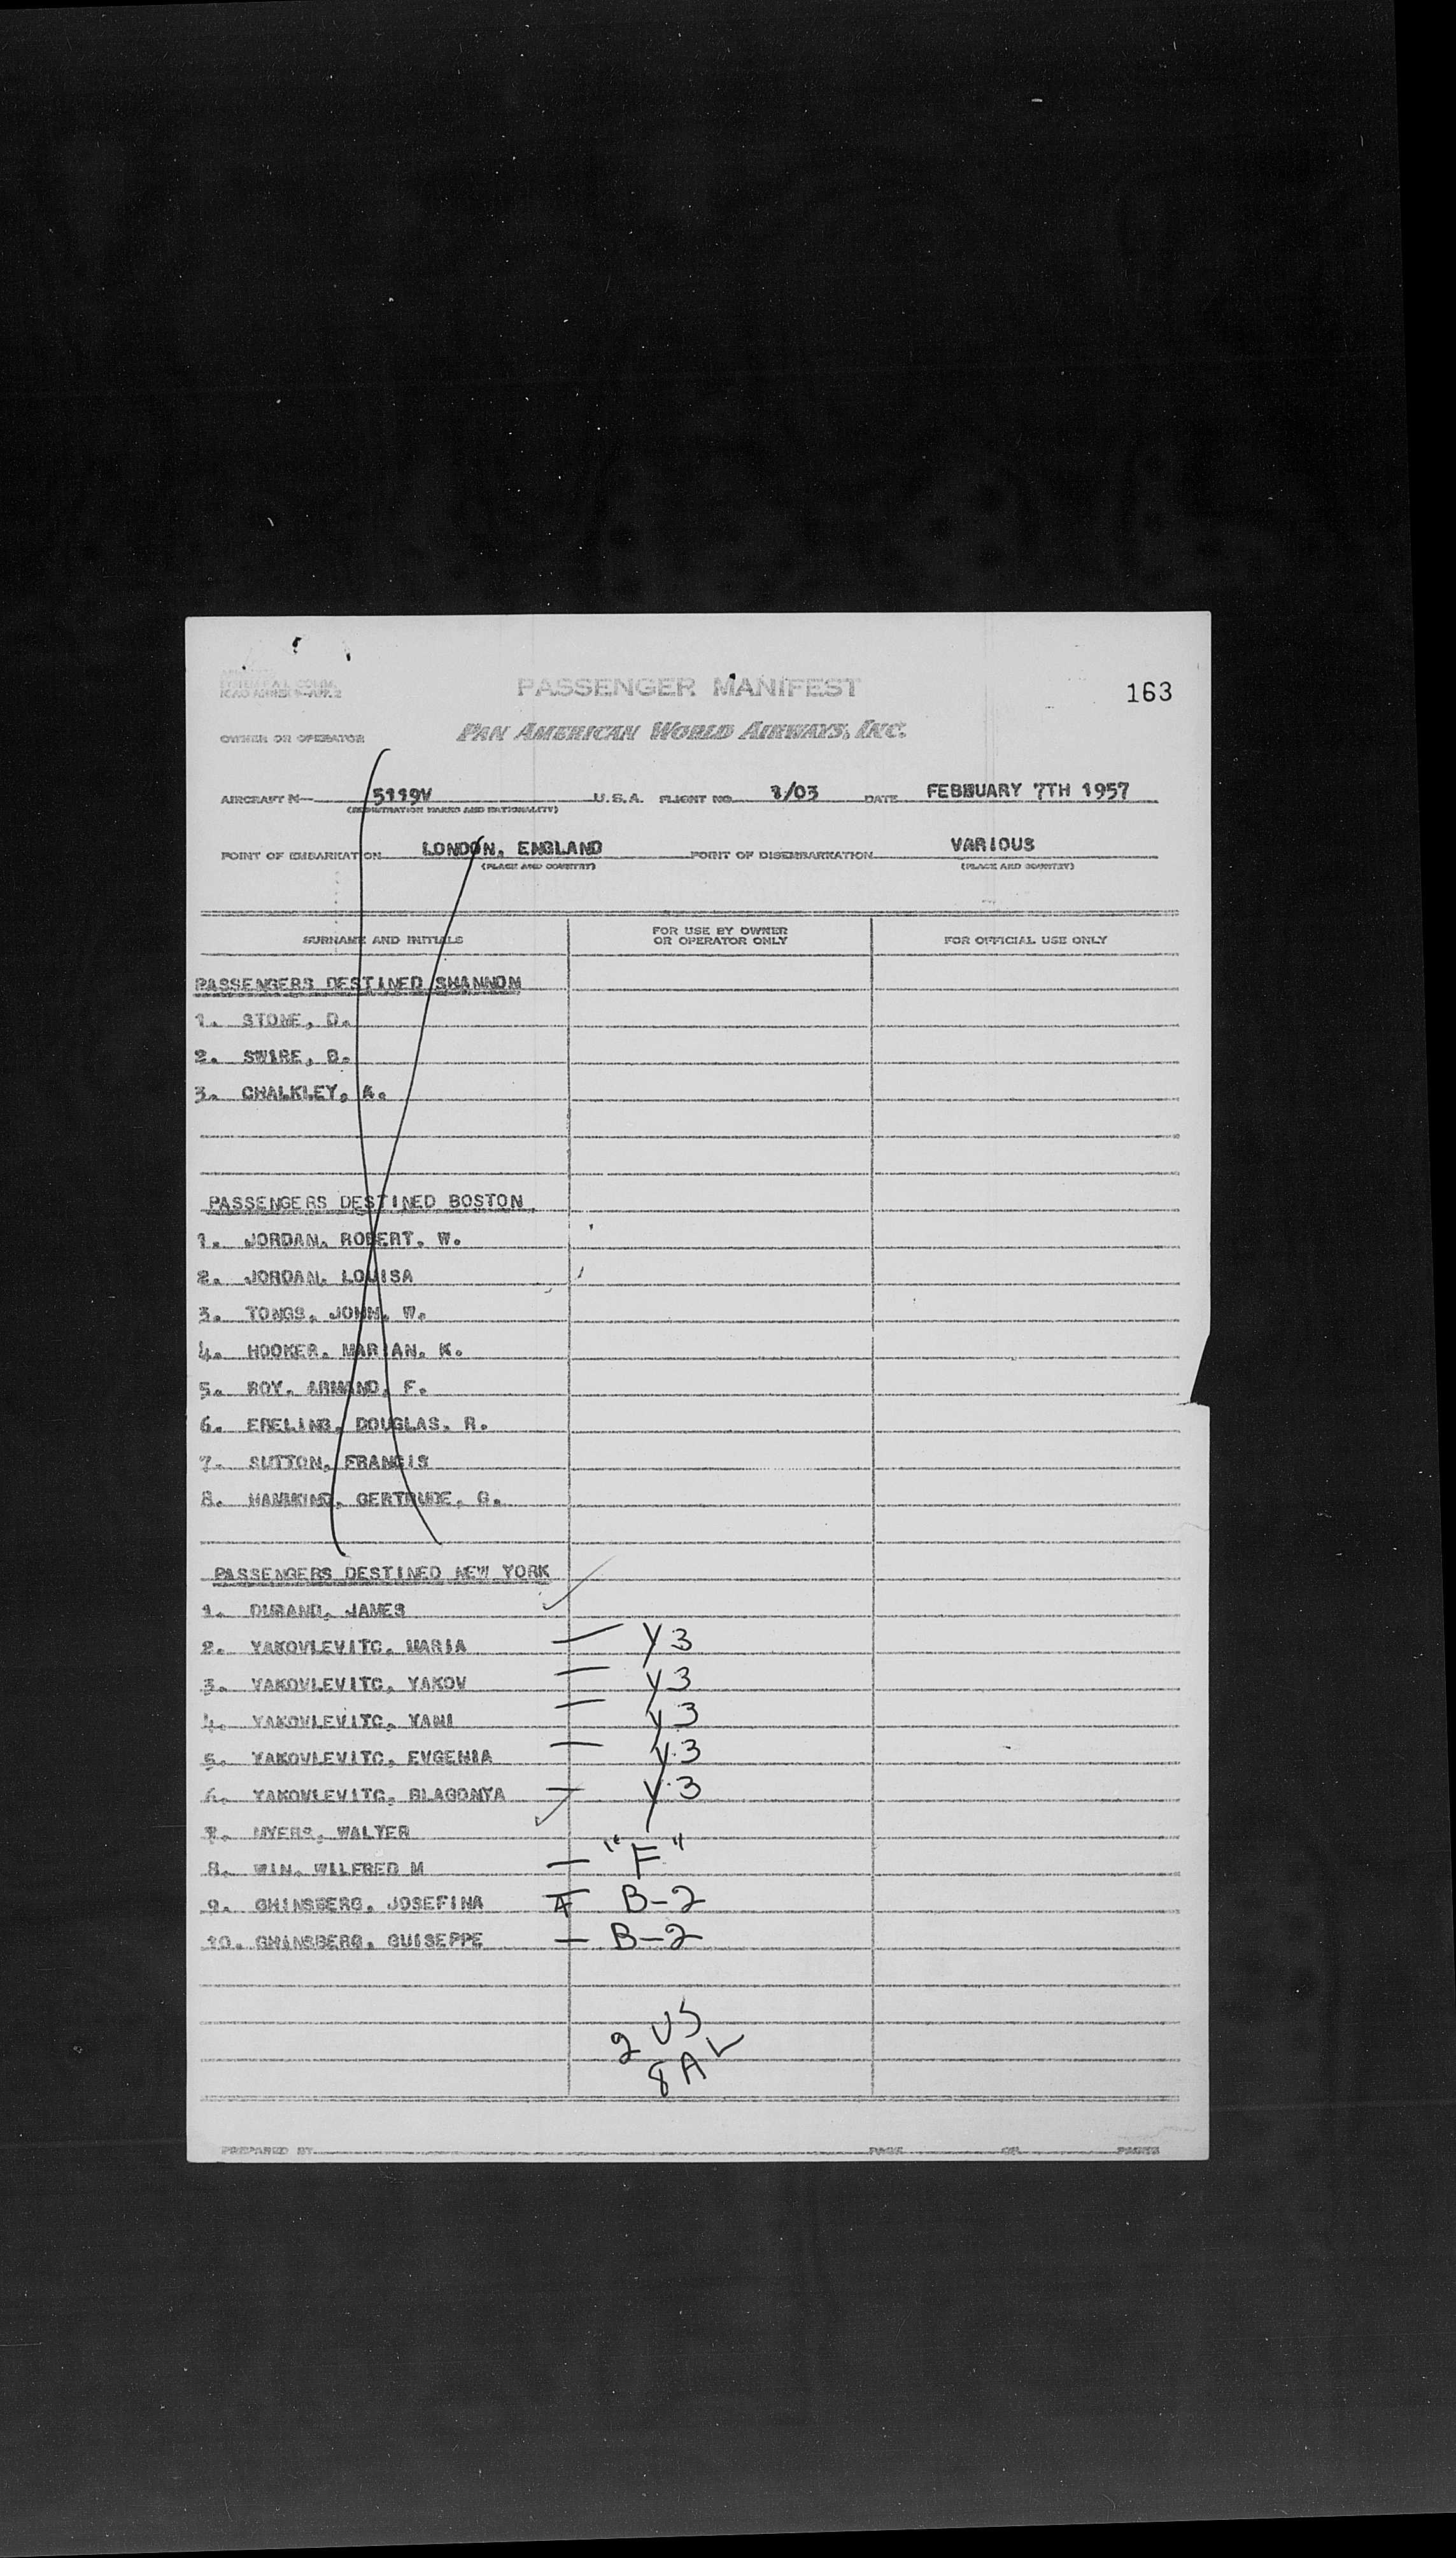 SYSTEM F.A.L. COMM.
ICAO ANNEX 9-APP. 2
PASSENGER MANIFEST
163
OWNER OR OPERATOR
PAN AMERICAN WORLD AIRWAYS, INC.
AIRCRAFT N- 5119V U.S.A. FLIGHT NO. 1/03 DATE FEBRUARY 7TH 1957
(REGISTRATION MARKS AND NATIONALITY)
POINT OF EMBARKATION LONDON, ENGLAND POINT OF DISEMBARKATION VARIOUS
(PLACE AND COUNTRY) (PLACE AND COUNTRY)
SURNAME AND INITIALS FOR USE BY OWNER OR OPERATOR ONLY FOR OFFICIAL USE ONLY
PASSENGERS DESTINED SHANNON
1. STONE, D.
2. SWIRE, B.
3. CHALKLEY, A.
PASSENGERS DESTINED BOSTON
1. JORDAN, ROBERT. W.
2. JORDAN, LOUISA
3. TONGS, JOHN, W.
4. HOOKER, MARIAN, K.
5. ROY, ARMAND, F.
6. EBELING, DOUGLAS. R.
7. SUTTON, FRANCIS
8. GERTRUDE, G.
PASSENGERS DESTINED NEW YORK
1. DURAND, JAMES
2. YAKOVLEVITC, MARIA — Y3
3. YAKOVLEVITC, YAKOV — Y3
4. YAKOVLEVITC, YANI — Y3
5. YAKOVLEVITC, EVGENIA — Y.3
6. YAKOVLEVITC, BLAGONYA — Y.3
7. MYERS, WALTER
8. WIN, WILFRED M — "F"
9. GHINSBERG, JOSEFINA A B-2
10. GHINSBERG, GUISEPPE — B-2
2 US
8 A
PREPARED BY PAGE OF PAGES